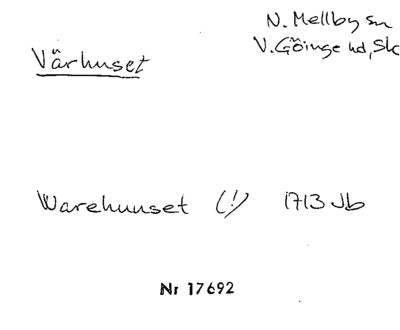 N. Mellby sn
V. Göinge hd, Sk
Värhuset
Warehuuset (!) 1713 Jb
Nr 17692